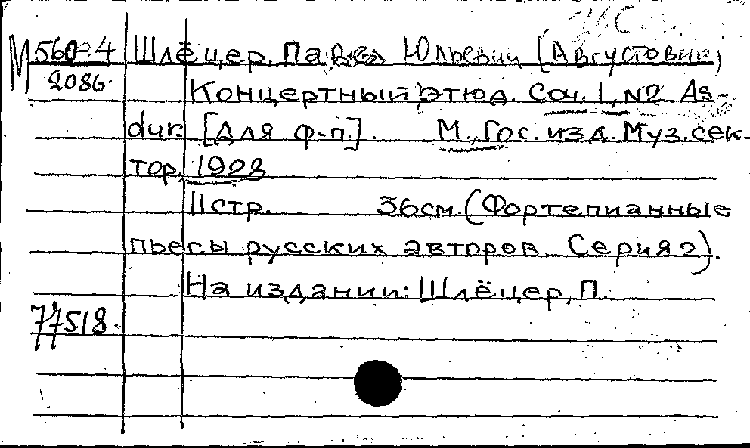 М 560-4 Шлёцер, Павел Юльевич [Августович]
2086. Концертный этюд. Соч. 1, № As-
dur. [Для ф-п.]. М., Гос. изд. Муз. сек-
тор, 1923
11 стр. 36 см. (Фортепианные
пьесы русских авторов. Серия 2).
На издании: Шлёцер, П.
77518.